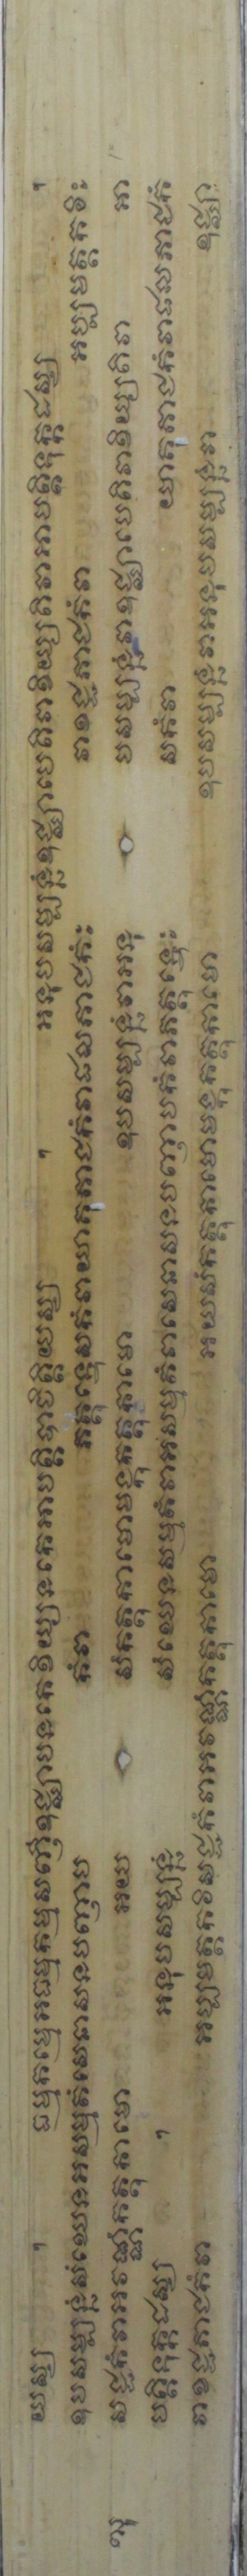 យស្ស ។ ធម្មកម្មេអធម្មកម្មសញ្ញីឧជ្ឈាបនកេខិយ្យនកេអាបត្តិបាចិត្តិយស្ស ។ អនុបសម្បន្នំឧជ្ឈាបេតិវាខិយ្យតិវាអាបត្តិទុក្កដស្ស ។
ឧបសម្បន្នំសំឃេនអសម្មតំសេនាសនបញ្ញាប កំវា ភត្តុទ្ទេសកំវាយាគុភាជកំវាផលភាជកំះ វាខជ្ជភាជកំវា អប្បមត្តកវិះ
សជ្ជកំវាអវណ្ណំកត្តុកាមោ អយ សំកត្តុកាមោមង្កុកត្តុកាមោ ឧបសម្បន្នំវាអនុ បសម្បន្នំវាឧជ្ឈាបេតិវាខិយ្យតិវា អា
បត្តិទុក្កដស្ស ។ អនុបសម្បន្នំ សំឃេនសម្មតំវាអសម្មតំវាសេនាសនបញ្ញាបកំវាភត្តុទ្ទេះ សកំវា យាគុភាជកំវាផលភាជកំ
វាខជ្ជភាជកំវា អប្បមត្តកវិសជ្ជកំវាអវណ្ណំកត្តុកាមោ អយសំកត្តុកាមោមង្កុកត្តុកាមោ ឧបសម្បន្នំវាអនុបសម្បន្នំវា ឧជ្ឈា